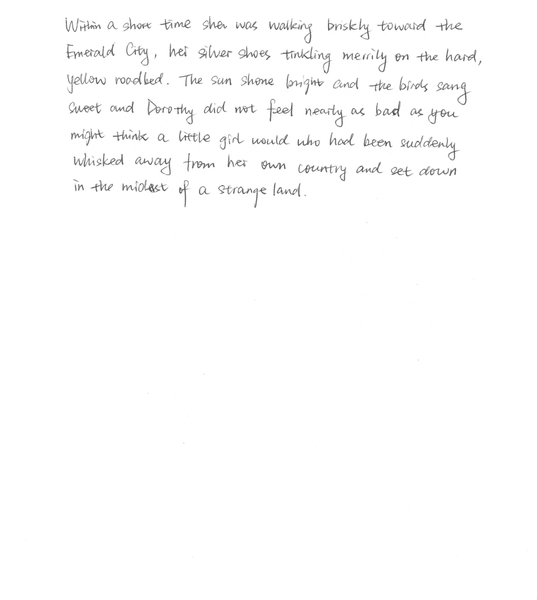 Within a short time sher was walking briskly toward the
Emerald City, her silver shoes tinkling merrily on the hard,
yellow roadbed. The sun shone bright and the birds sang
sweet and Dorothy did not feel nearly as bad as you
might think a little girl would who had been suddenly
whisked away from her own country and set down
in the midst of a strange land.